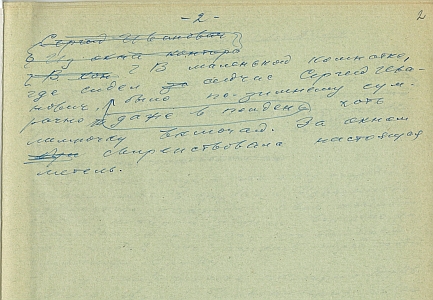 - 2 - 2
Сергей Иванович
Из окна конторы
В кон В маленькой комнатке,
где сидел сейчас Сергей Ива-
нович, было по-зимнему сум-
рачно даже в полдень хоть
лампочку включай. За окном
свирепствовала настоящая
метель.